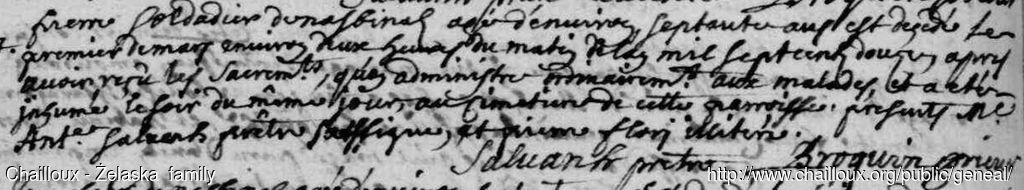 pierre Soldadier de nasbinals agé denviron septante ans est decedé le
premier de mars environ deux heures du matin de lan mil sept cent douze, apres
avoir reçu les sacrem.ts, qu'on administre ordinairem.t aux malades, et a eté
inhumé le soir du même jour, au cimetiere de cette parroisse. presants M.e
Ant.e salvanh prêtre, et pierre illiteré.
Salvanh prêtre Broquin prieur
Chailloux - Żelaska family http://www.chailloux.org/public/geneal/